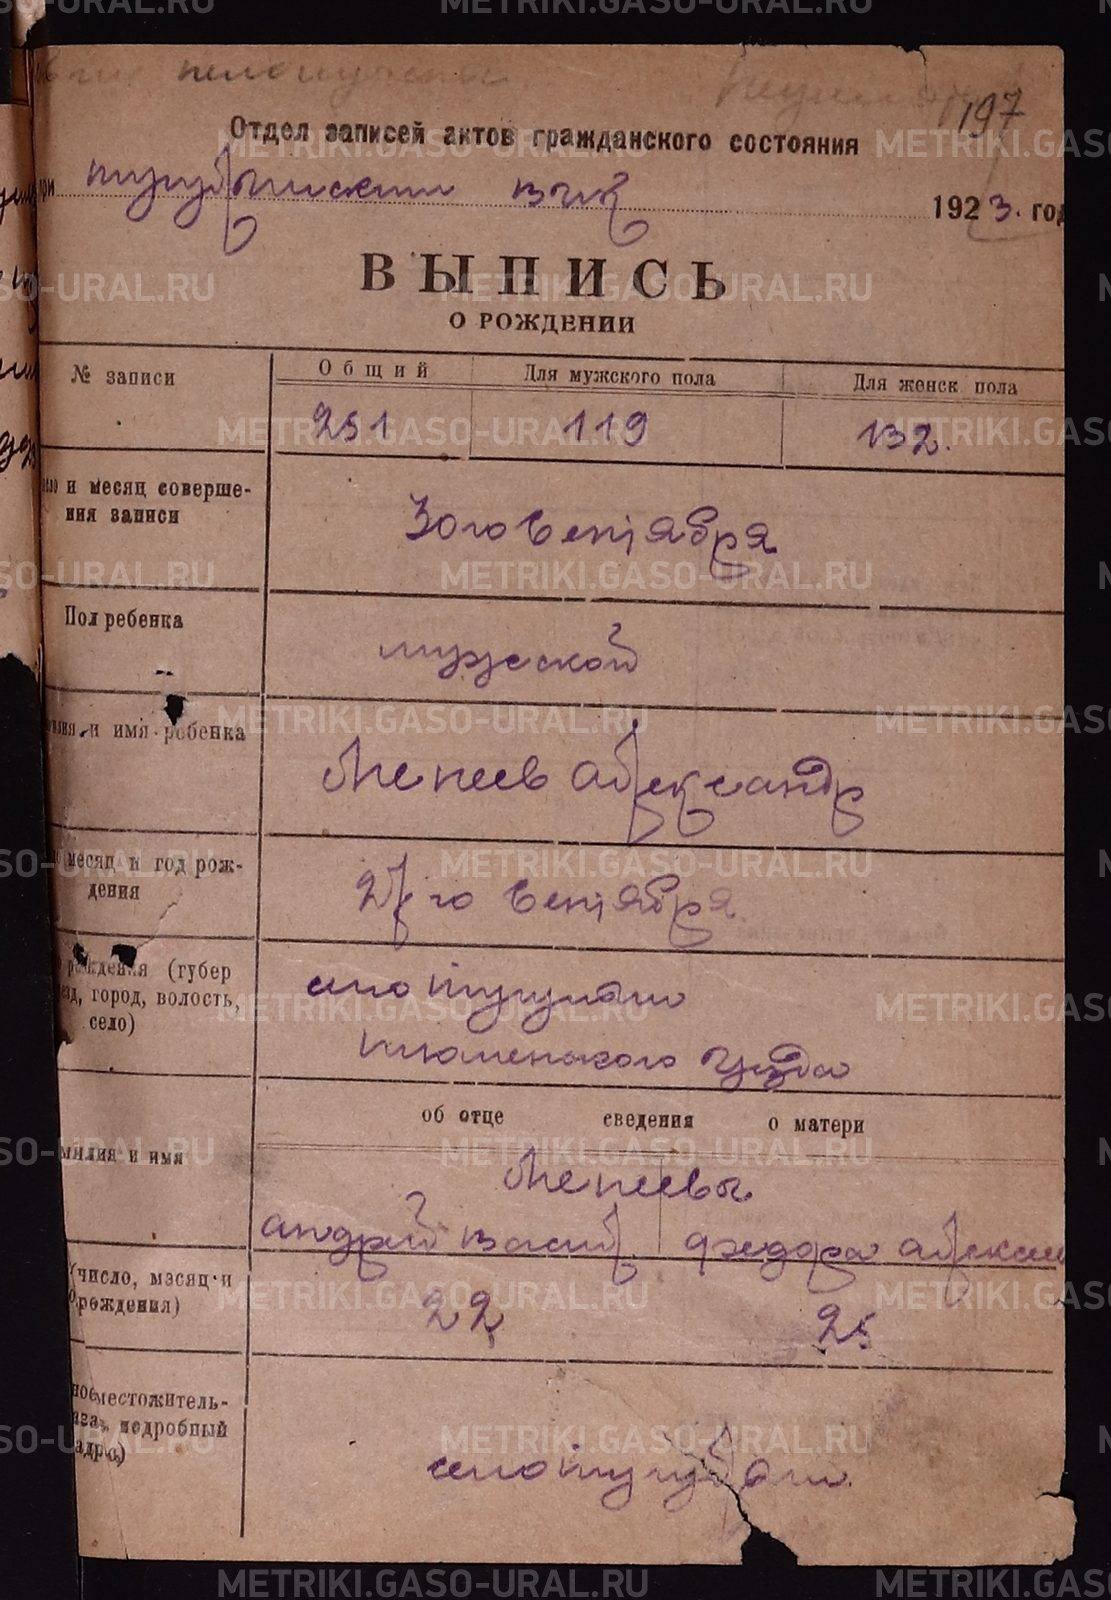 197
Отдел записей актов гражданского состояния
при 1923. год
ВЫПИСЬ
О РОЖДЕНИИ
№ записи Общий Для мужского пола Для женск. пола
251 119 132.
и месяц соверше-
ния записи
30го Сентября
Пол ребенка
мужской
и имя ребенка
Менеев Александр
месяц и год рож-
дения
Сентября
рождения (губер
город, волость,
село)
село
Тюменского Уезда
об отце сведения о матери
милия и имя
Менеевы
Андрей Васил Федора Алексан
число, месяц и
рождения)
22 25
местожитель-
подробный
адрес)
село
METRIKI.GASO-URAL.RU